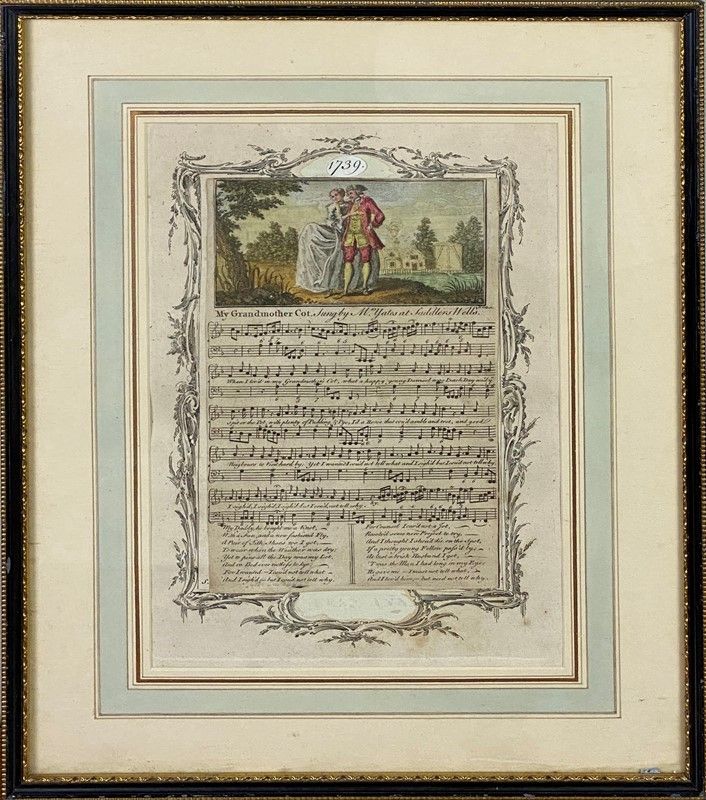 1739.
My Grandmother Cot. Sung by Mrs. Yates at Sadlers Wells.
When I liv'd in my Grandmother's Cot, what a happy young Damsel was I, each Day
Spit or the Pot, with plenty of Pudding & Pye; I'd a Horse that cou'd amble and trot, and
Neighbour to hard by, Yet I wanted I cou'd not tell what and I sigh'd but I cou'd not tell why,
I sigh'd, I sigh'd, I sigh'd but I cou'd not tell why.
My Daddy, he bought me a Knot,
With a Fan, and a new fashion'd Fly,
A Pair of Silk Shoes too I got,
To wear when the Weather was dry;
Yet to pine all the Day was my Lot,
And in Bed ever restless to lye;
For I wanted I cou'd not tell what
And I sigh'd but I cou'd not tell why.
For Counsel I car'd not a jot,
Resolv'd some new Project to try,
And I thought I shou'd die on the Spot,
If a pretty young Fellow pass'd by;
At last a brisk Husband I got,
'Twas the Man I had long in my Eye;
He gave me I must not tell what,
And I lov'd him but need not tell why.